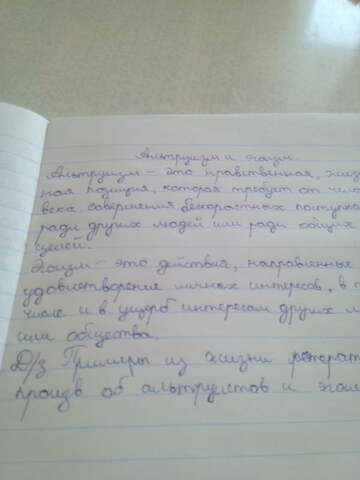 Альтруизм и эгоизм.
Альтруизм – это нравственная, жиз
ная позиция, которая требует от чело
века совершения бескорыстных поступко
ради других людей или ради общих
целей.
Эгоизм – это действия, направленные
удовлетворение личных интересов, в т
числе и в ущерб интересам других л
или общества.
Д/з Примеры из жизни
произв об альтруистов и эгои